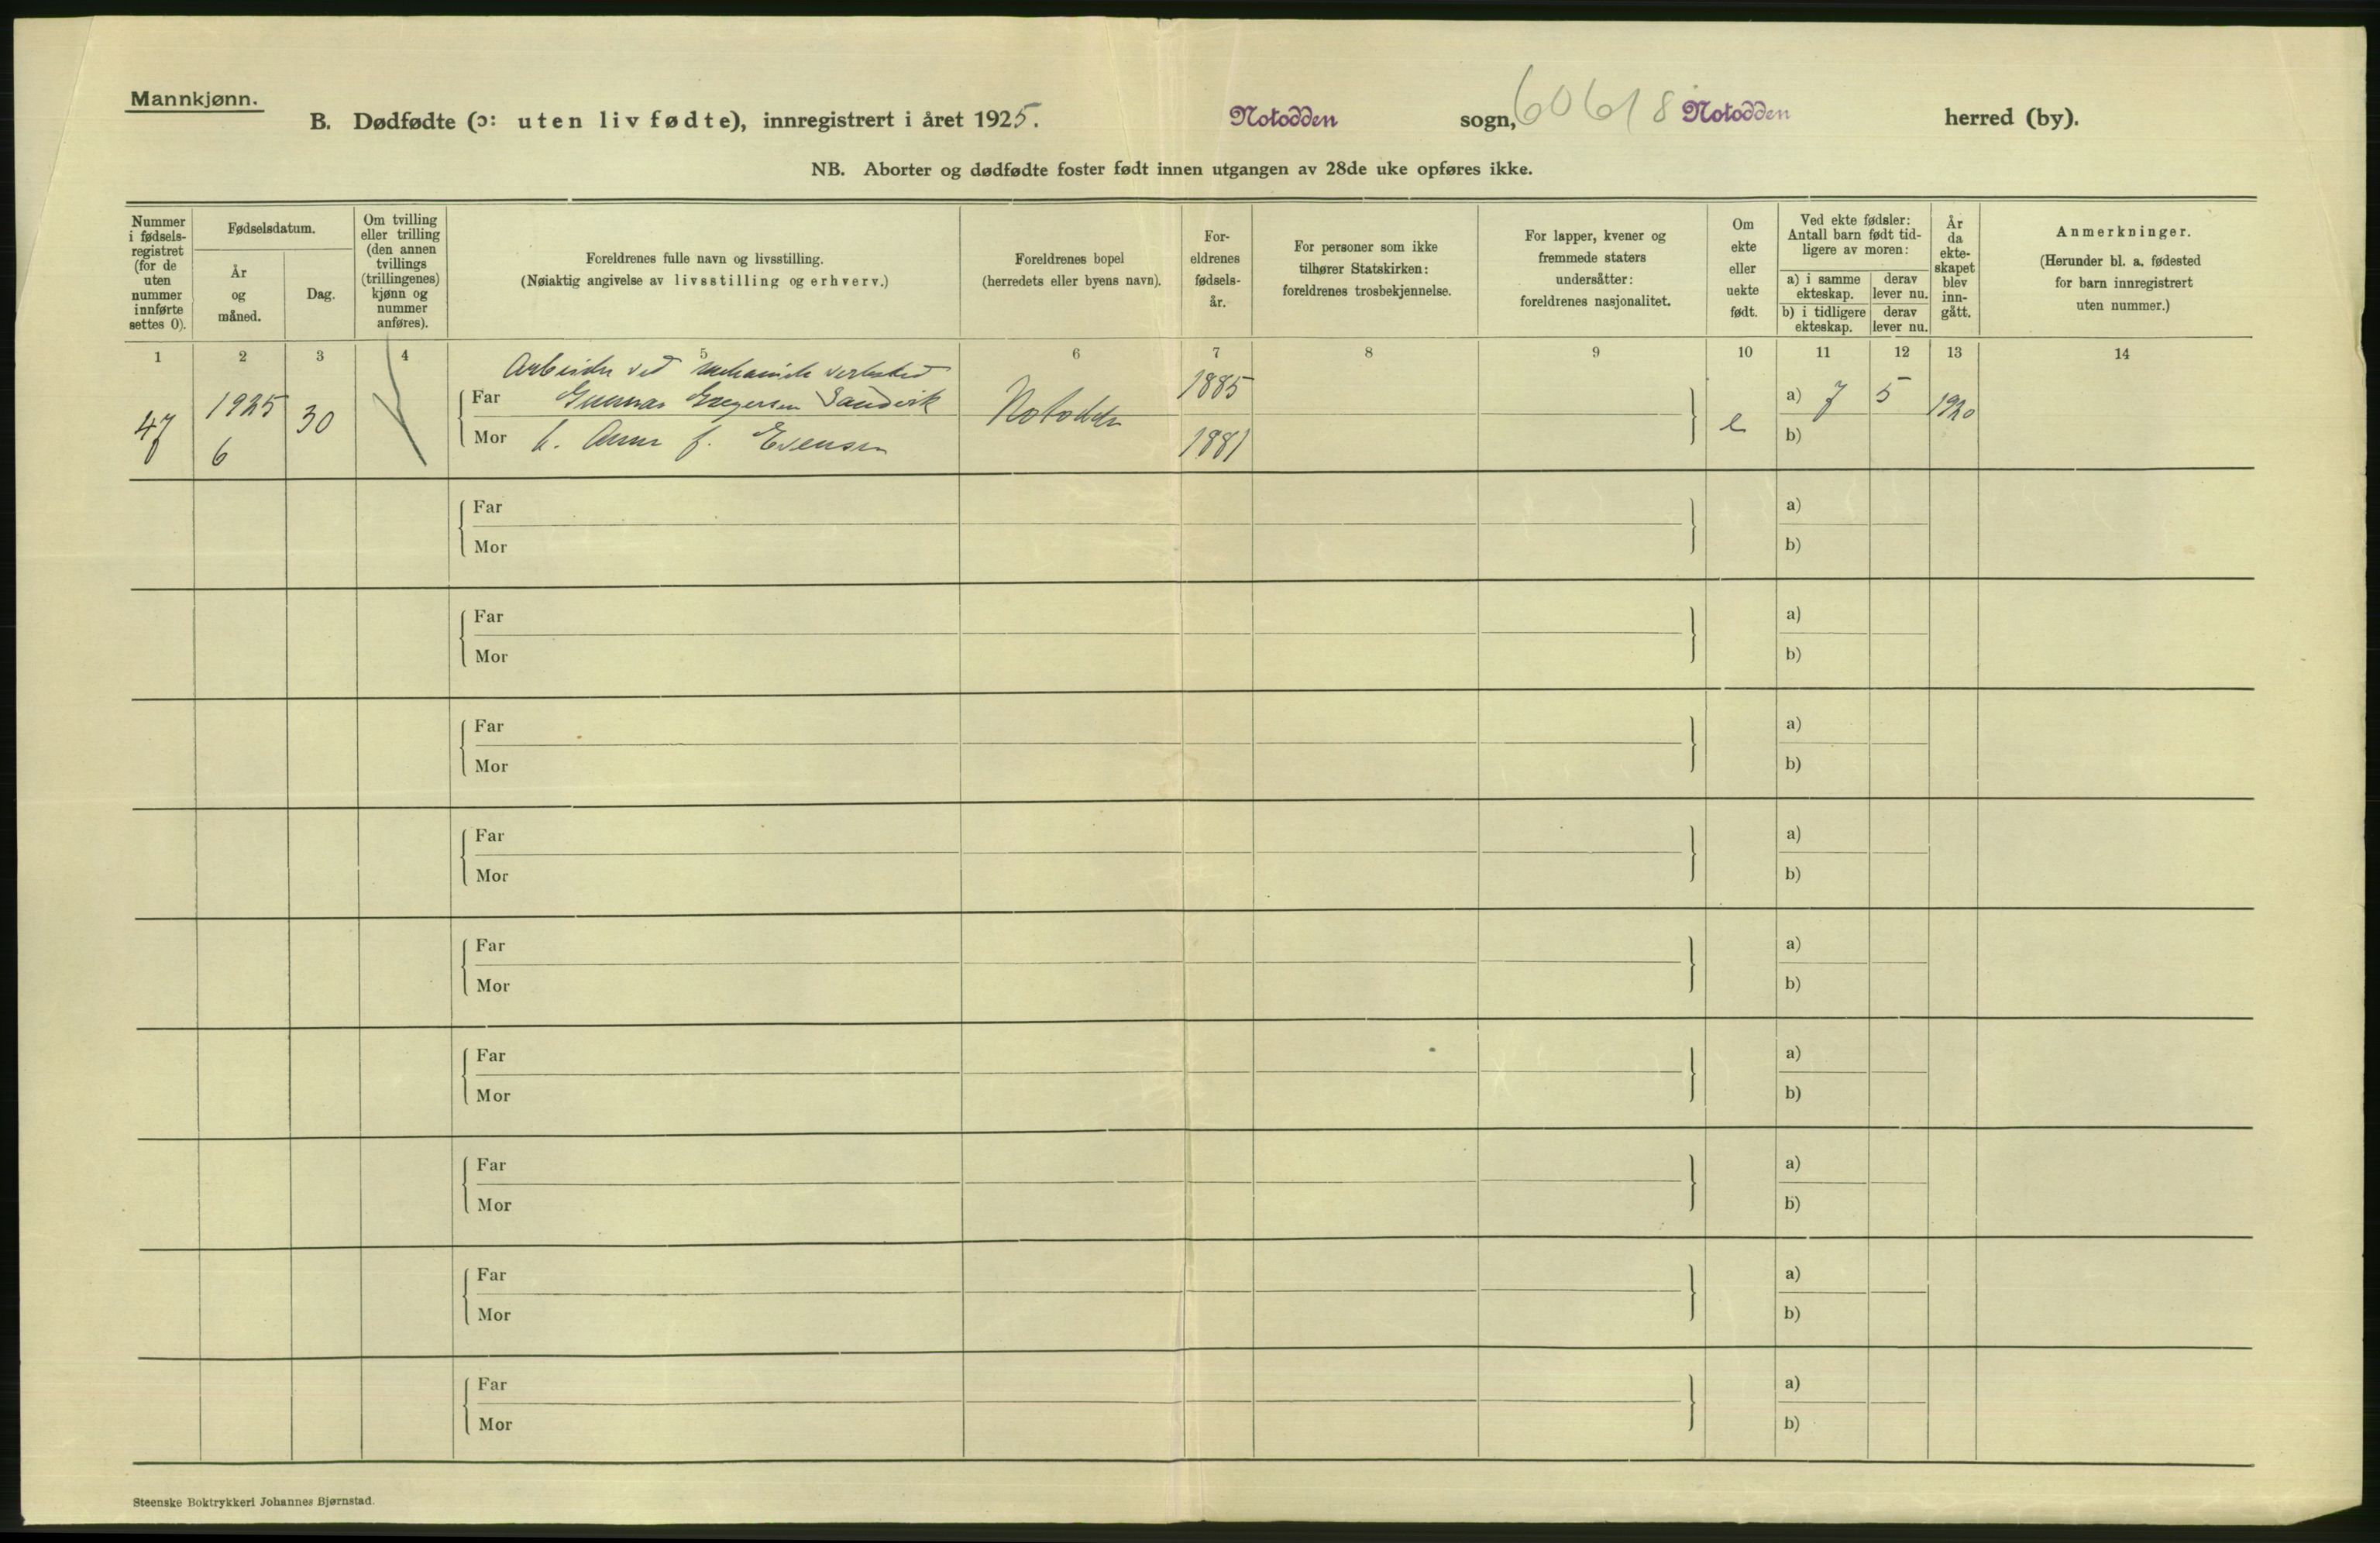 Mannkjønn.
B. Dødfødte (ɔ: uten liv fødte), innregistrert i året 1925. Notodden sogn, 60618 Notodden herred (by).
NB. Aborter og dødfødte foster født innen utgangen av 28de uke opføres ikke.
Nummer i fødsels-registret (for de uten nummer innførte settes 0).
Fødselsdatum.
År og måned.
Dag.
Om tvilling eller trilling (den annen tvillings (trillingenes) kjønn og nummer anføres).
Foreldrenes fulle navn og livsstilling.
(Nøiaktig angivelse av livsstilling og erhverv.)
Foreldrenes bopel
(herredets eller byens navn).
For-eldrenes fødsels-år.
For personer som ikke tilhører Statskirken: foreldrenes trosbekjennelse.
For lapper, kvener og fremmede staters undersåtter: foreldrenes nasjonalitet.
Om ekte eller uekte født.
Ved ekte fødsler: Antall barn født tid-ligere av moren:
a) i samme ekteskap.
derav lever nu.
b) i tidligere ekteskap.
derav lever nu.
År da ekte-skapet blev inn-gått.
Anmerkninger.
(Herunder bl. a. fødested for barn innregistrert uten nummer.)
1 2 3 4 5 6 7 8 9 10 11 12 13 14
Arbeider ved mekanisk verksted
47 1925 6 30 Far Gunnar Gregersen Notodden 1885 e a) 7 5 1920
Mor h. Anna f. Evensen 1881 b)
Far a)
Mor b)
Far a)
Mor b)
Far a)
Mor b)
Far a)
Mor b)
Far a)
Mor b)
Far a)
Mor b)
Far a)
Mor b)
Far a)
Mor b)
Far a)
Mor b)
Steenske Boktrykkeri Johannes Bjørnstad.